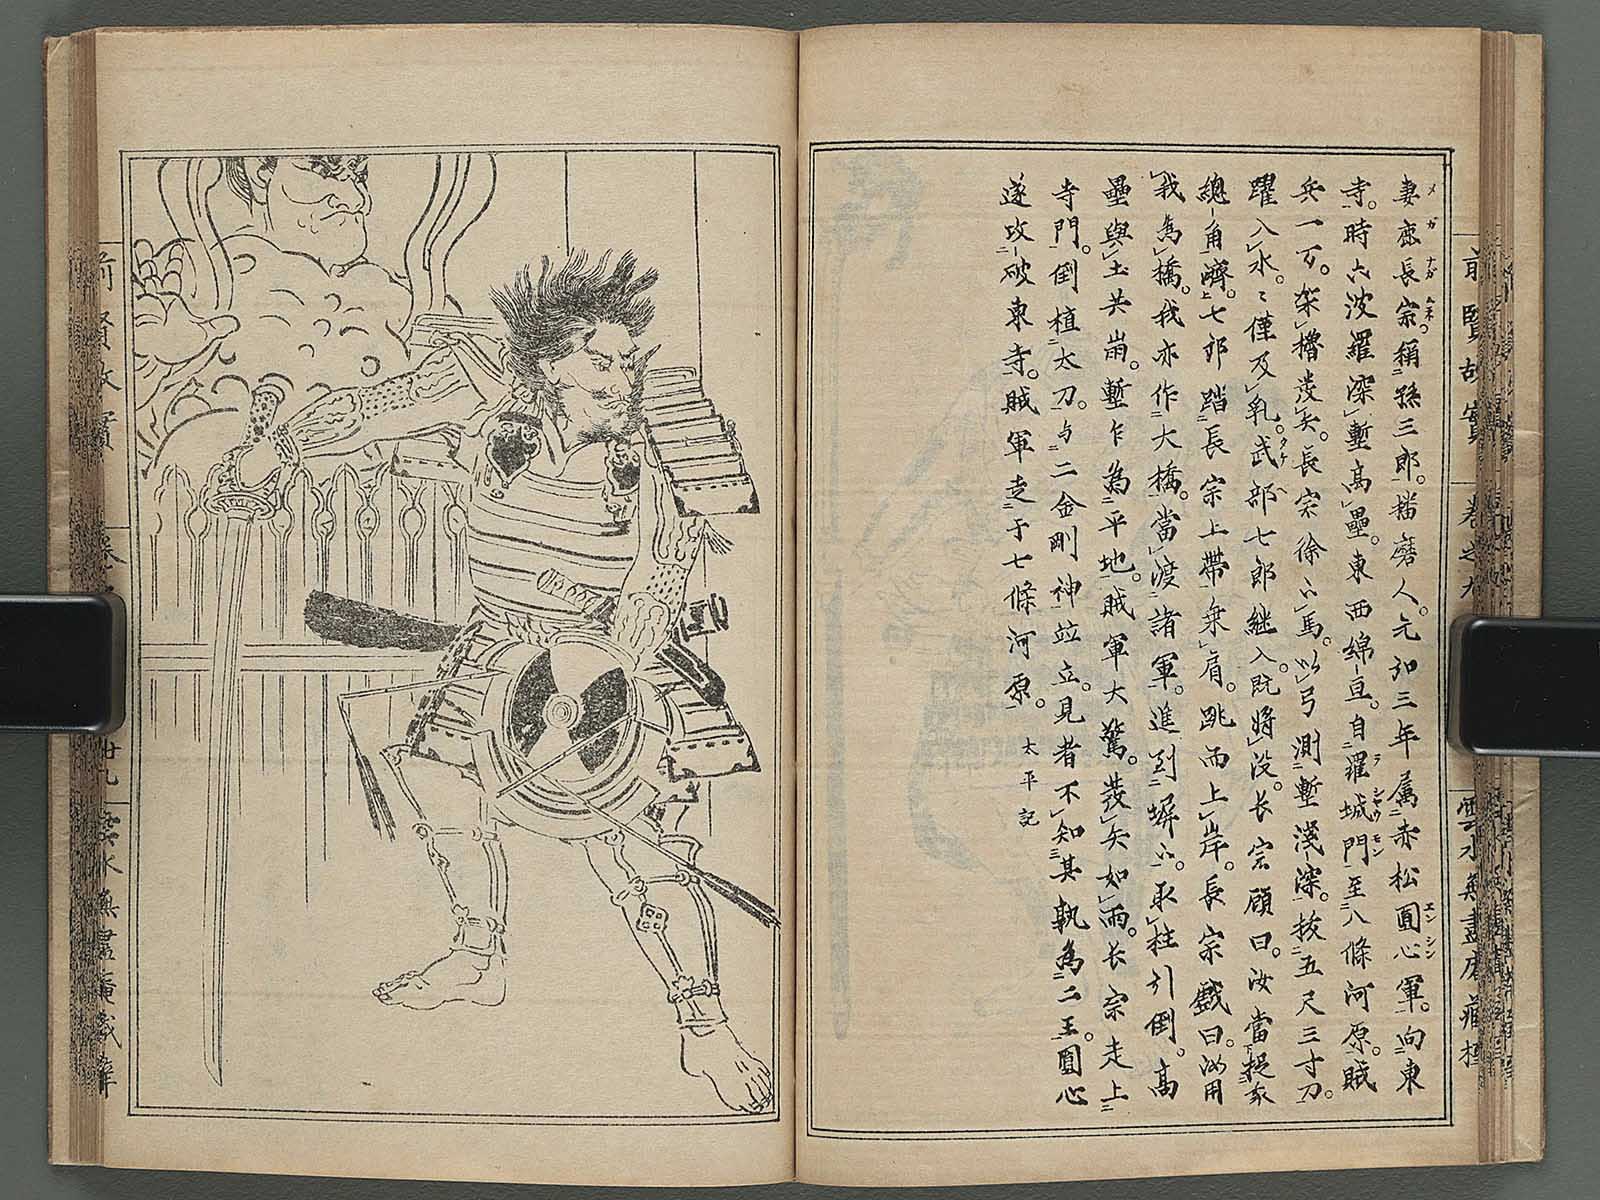 妻鹿長宗。稱孫三郎。播磨人。元弘三年属赤松圓心軍。向東
寺。時六波羅深塹高壘。東西綿亘。自羅城門至八條河原。賊
兵一万。架櫓发矢。長宗徐下馬。以弓測塹淺深。拔五尺三寸刀。
躍入水。々僅及乳。武部七郎継入。既將没。长宗顧曰。汝當捉我
總角濟。七郎踏長宗上帶乗肩。跳而上岸。長宗戯曰。汝用
我為橋。我亦作大橋。當渡諸軍。進到塀下。取柱引倒。高
壘與土共崩。塹乍為平地。賊軍大驚。发矢如雨。长宗走上
寺門。倒植太刀。与二金剛神竝立。見者不知其孰為二王。圓心
遂攻破東寺。賊軍走于七條河原。 太平記
メガ ナガムネ
エンシン
ラシャウモン
タケベ
前賢故實 卷之九 雲水無盡庵藏
前賢故實
廿九
雲水無盡庵藏